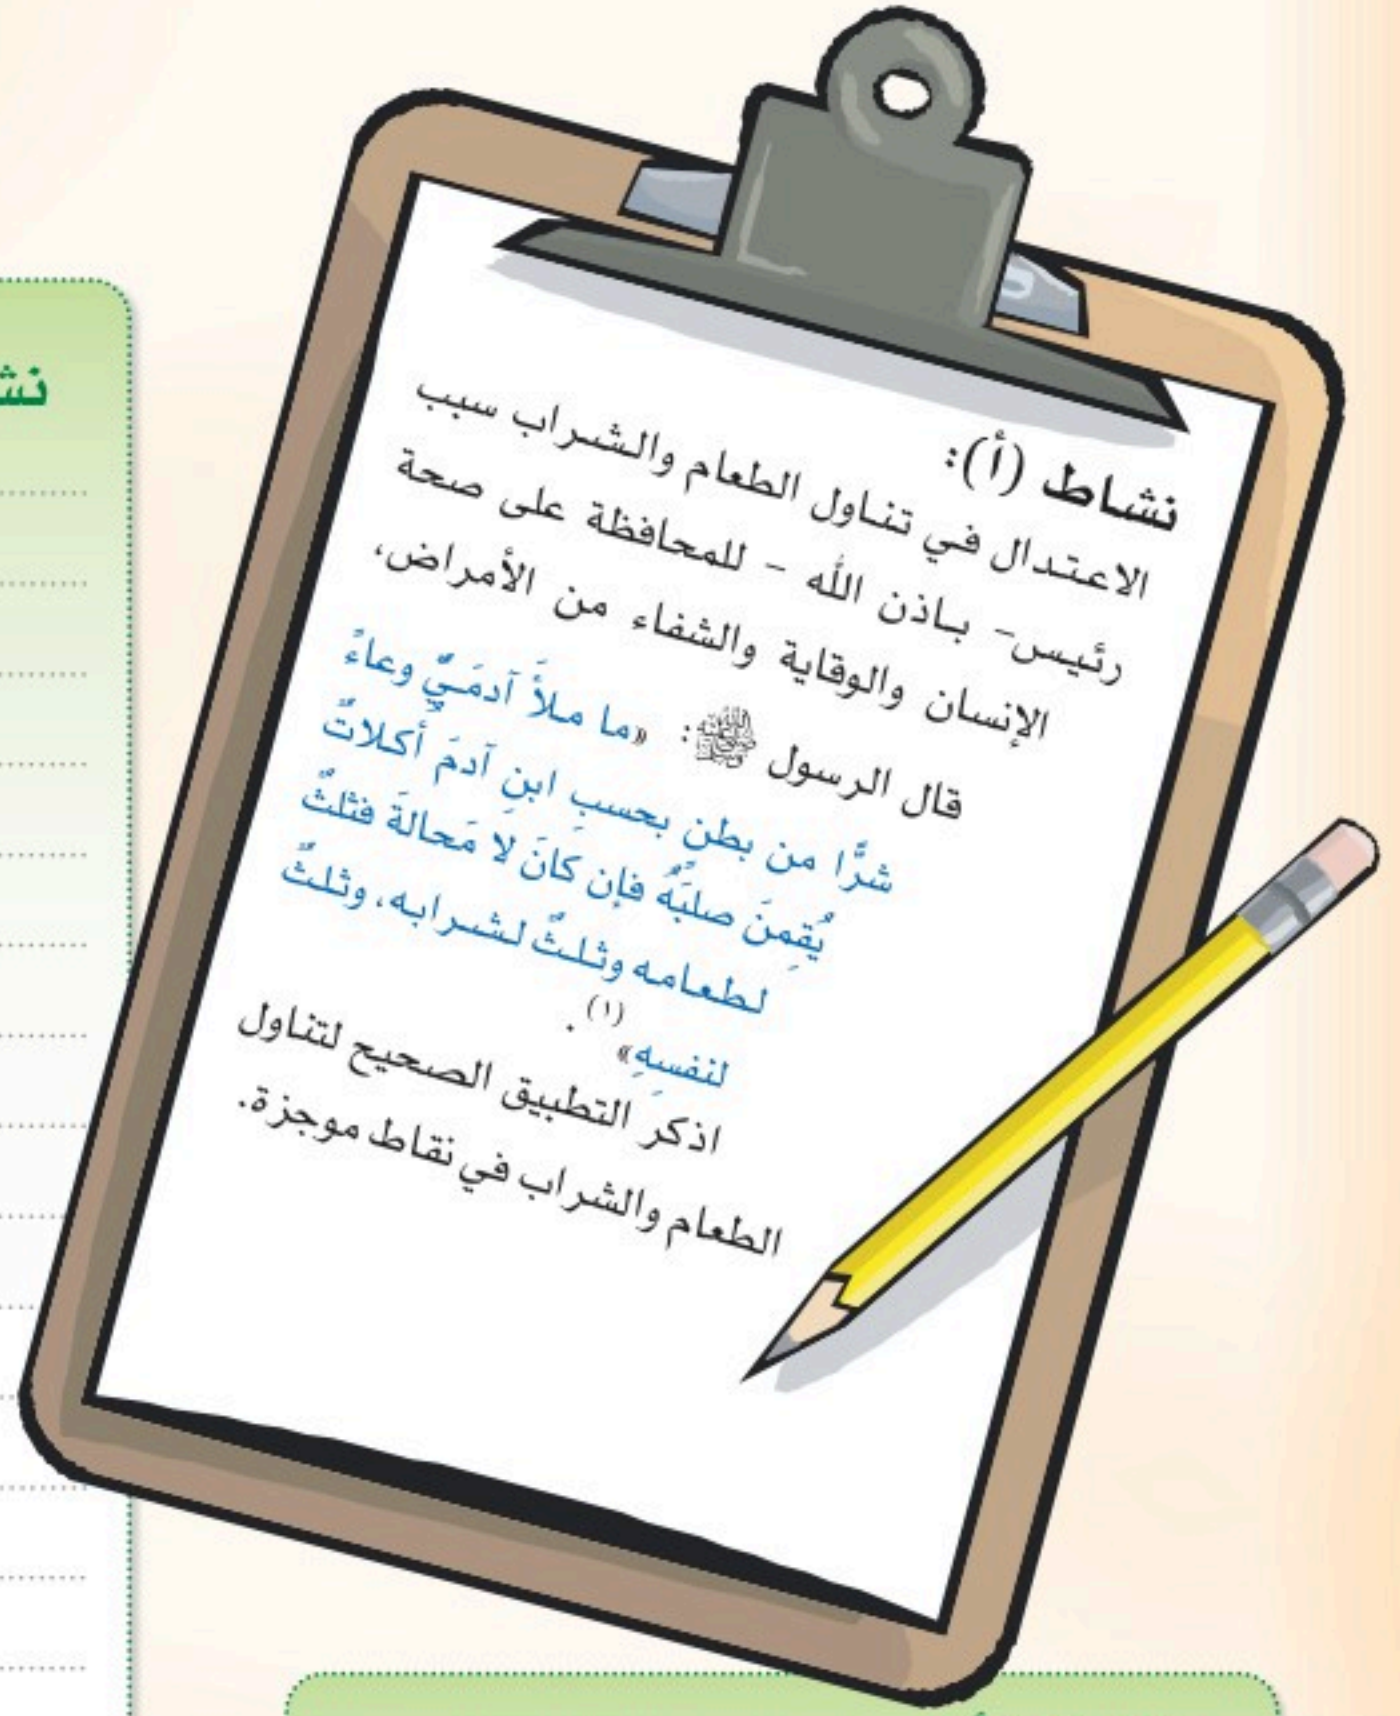 نشاط (أ):
الاعتدال في تناول الطعام والشراب سبب
رئيس- باذن الله - للمحافظة على صحة
الإنسان والوقاية والشفاء من الأمراض،
قال الرسول ﷺ: «ما ملأَ آدمَيٌّ وعاءً
شرًّا من بطن بحسبِ ابنِ آدمَ أكلاتٌ
يُقِمنَ صلبَهُ فإن كانَ لا مَحالةَ فثلثٌ
لطعامه وثلثٌ لشرابه، وثلثٌ
لنفسِهِ»(١).
اذكر التطبيق الصحيح لتناول
الطعام والشراب في نقاط موجزة.